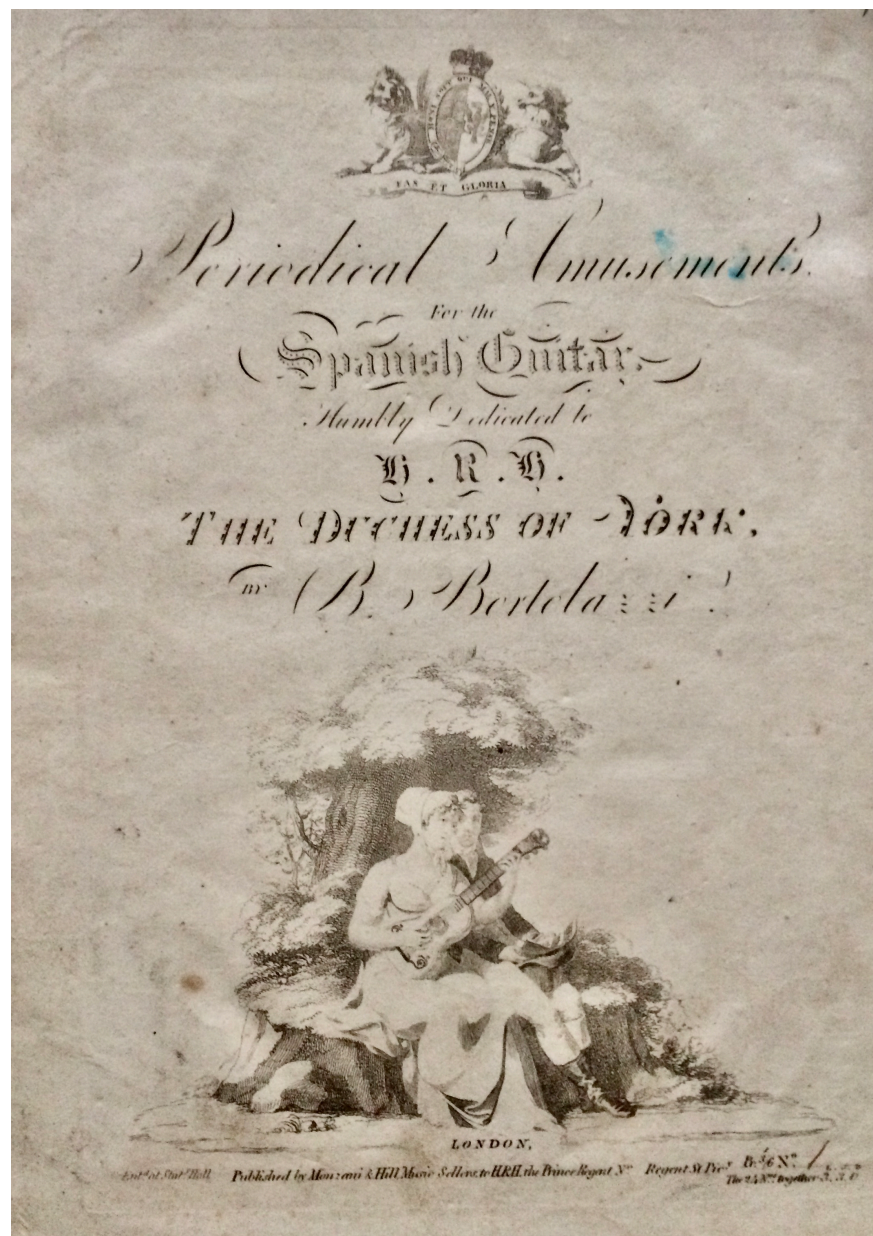 HONI SOIT QUI MAL Y PENSE
FAS ET GLORIA
Periodical Amusements.
For the
Spanish Guitar,
Humbly Dedicated to
H. R. H.
THE DUCHESS OF YORK,
BY B. Bortolazzi.
LONDON,
Ent.d at Stat.s Hall Published by Monzani & Hill Music Sellers, to H.R.H. the Prince Regent No. Regent St Pr. No. 1
The 24 Nos. together